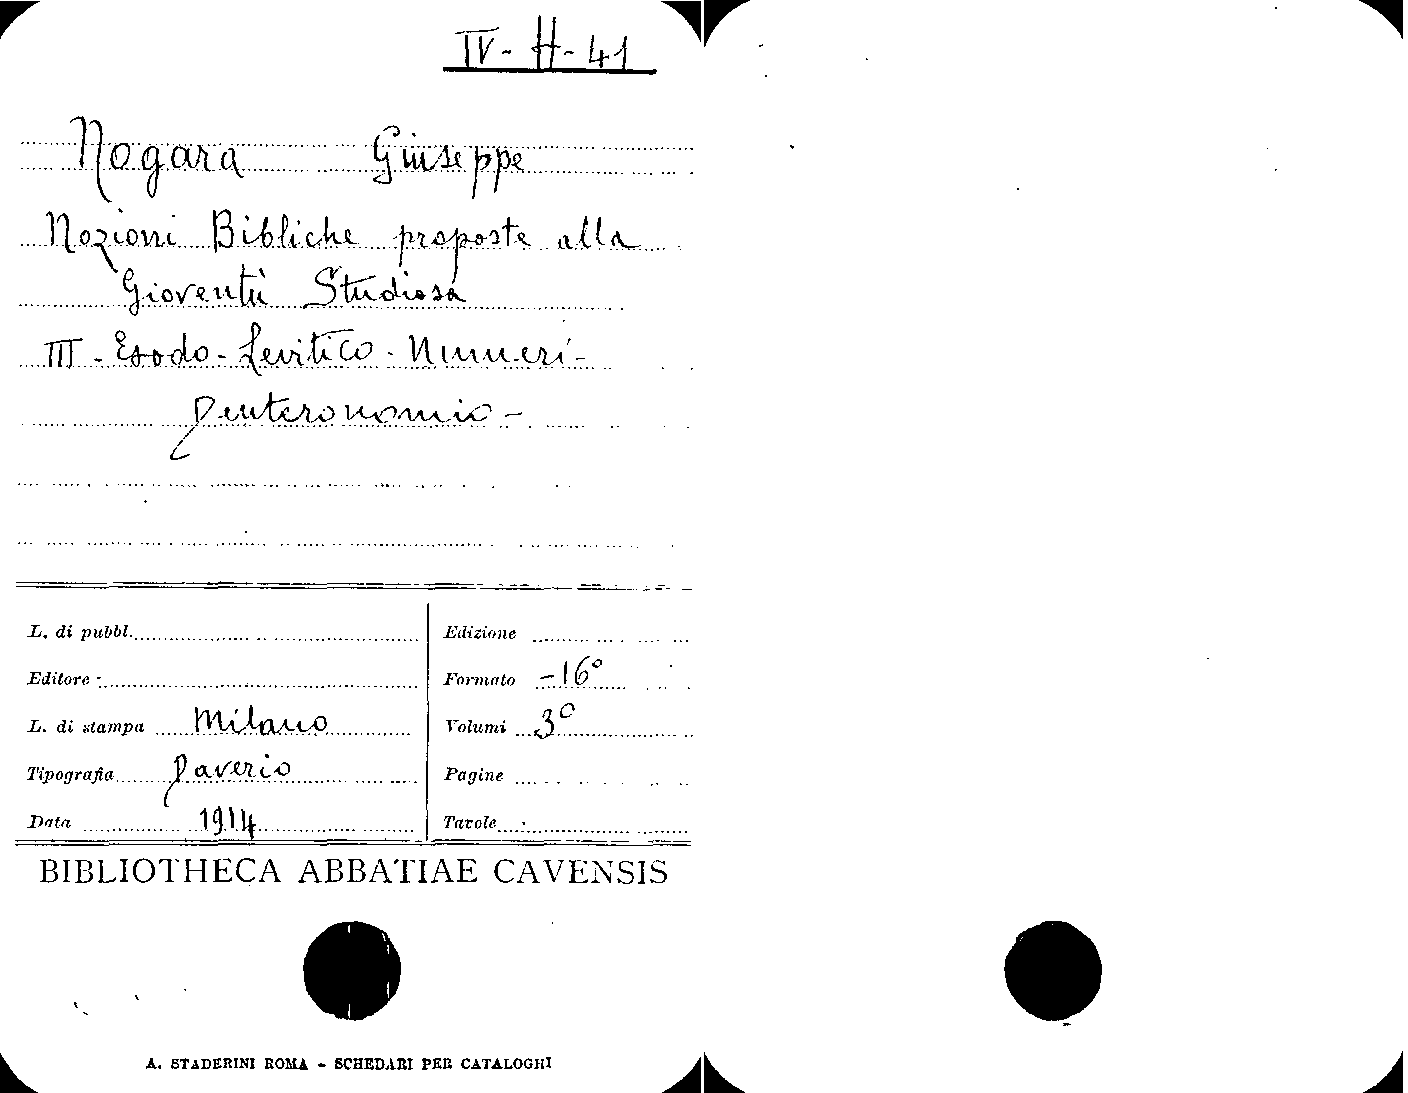 IV - H - 41
Nogara Giuseppe
Nozioni Bibliche proposte alla
Gioventù Studiosa
III - Esodo - Levitico - Numeri -
Deuteronomio -
L. di pubbl.
Edizione
Editore
Formato - 16°
L. di stampa Milano
Volumi 3°
Tipografia Daverio
Pagine
Data 1914
Tavole
BIBLIOTHECA ABBATIAE CAVENSIS
A. STADERINI ROMA - SCHEDARI PER CATALOGHI